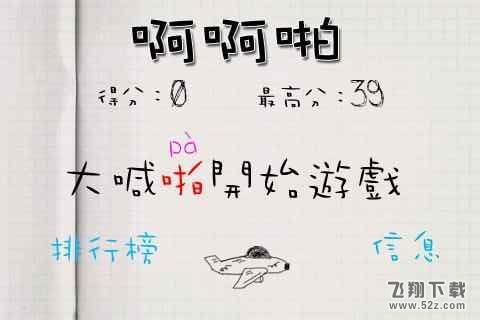 啊啊啪
得分：0 最高分：39
pà
大喊啪開始遊戲
排行榜 信息
飞翔下载
www.52z.com